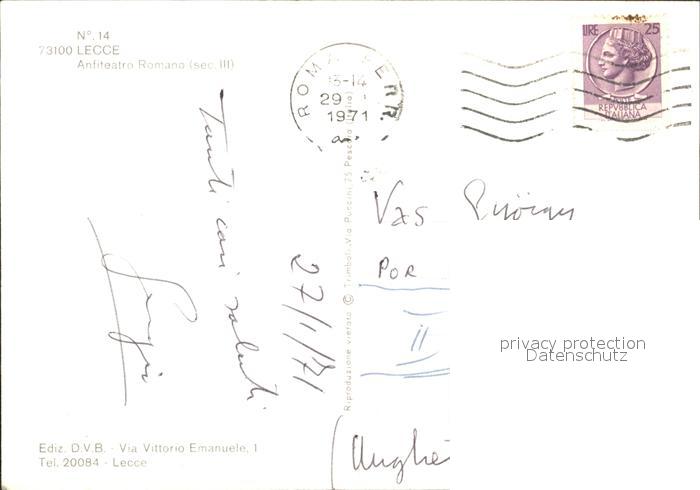 N°. 14
73100 LECCE
Anfiteatro Romano (sec. III)
ROMA FERR.
13-14
29
1971
LIRE 25
REPVBBLICA
ITALIANA
Tanti cari saluti
Sergio
27/1/71
Riproduzione vietata © Trimboli, Via Puccini, 75 Pescara (Italia)
Vas
POR
II
(Unghe
privacy protection
Datenschutz
Ediz. D.V.B. - Via Vittorio Emanuele, 1
Tel. 20084 - Lecce